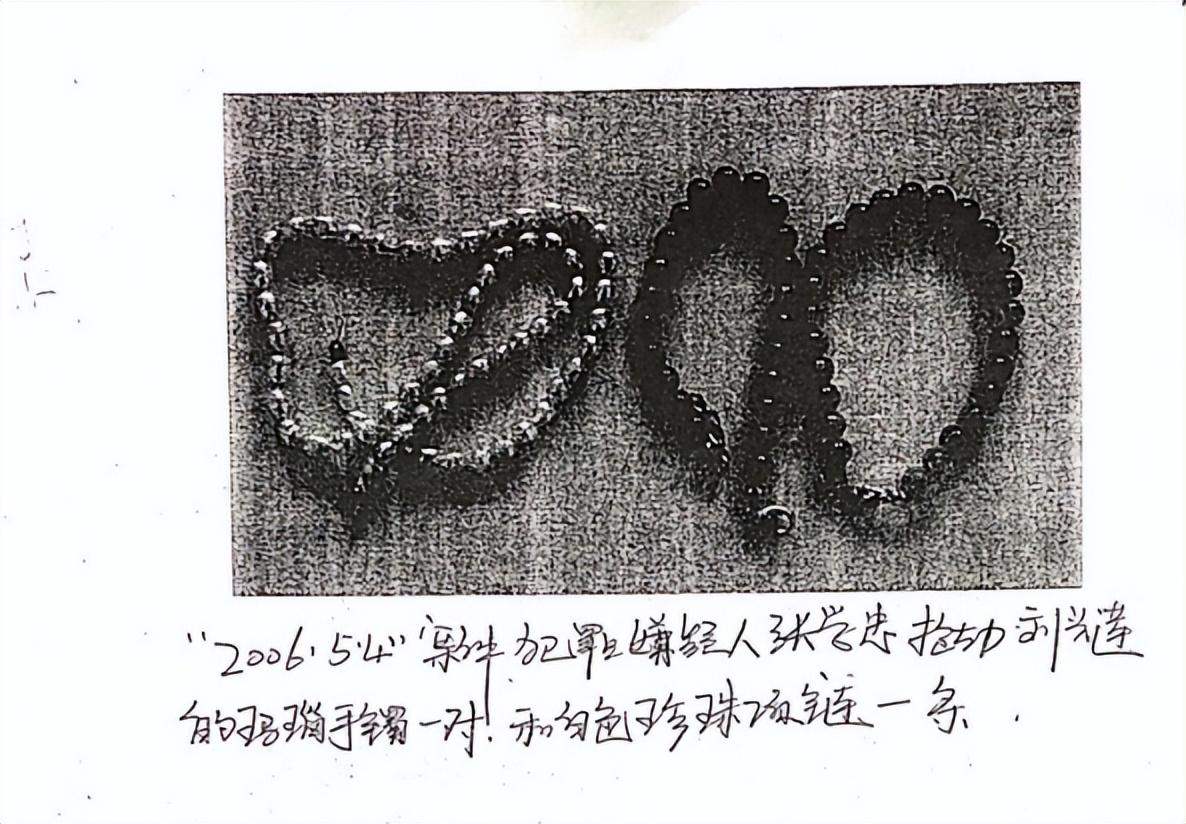 “2006.5.4”案件犯罪嫌疑人张学忠抢劫刘兴莲
的玛瑙手镯一对.和白色珍珠项链一条.